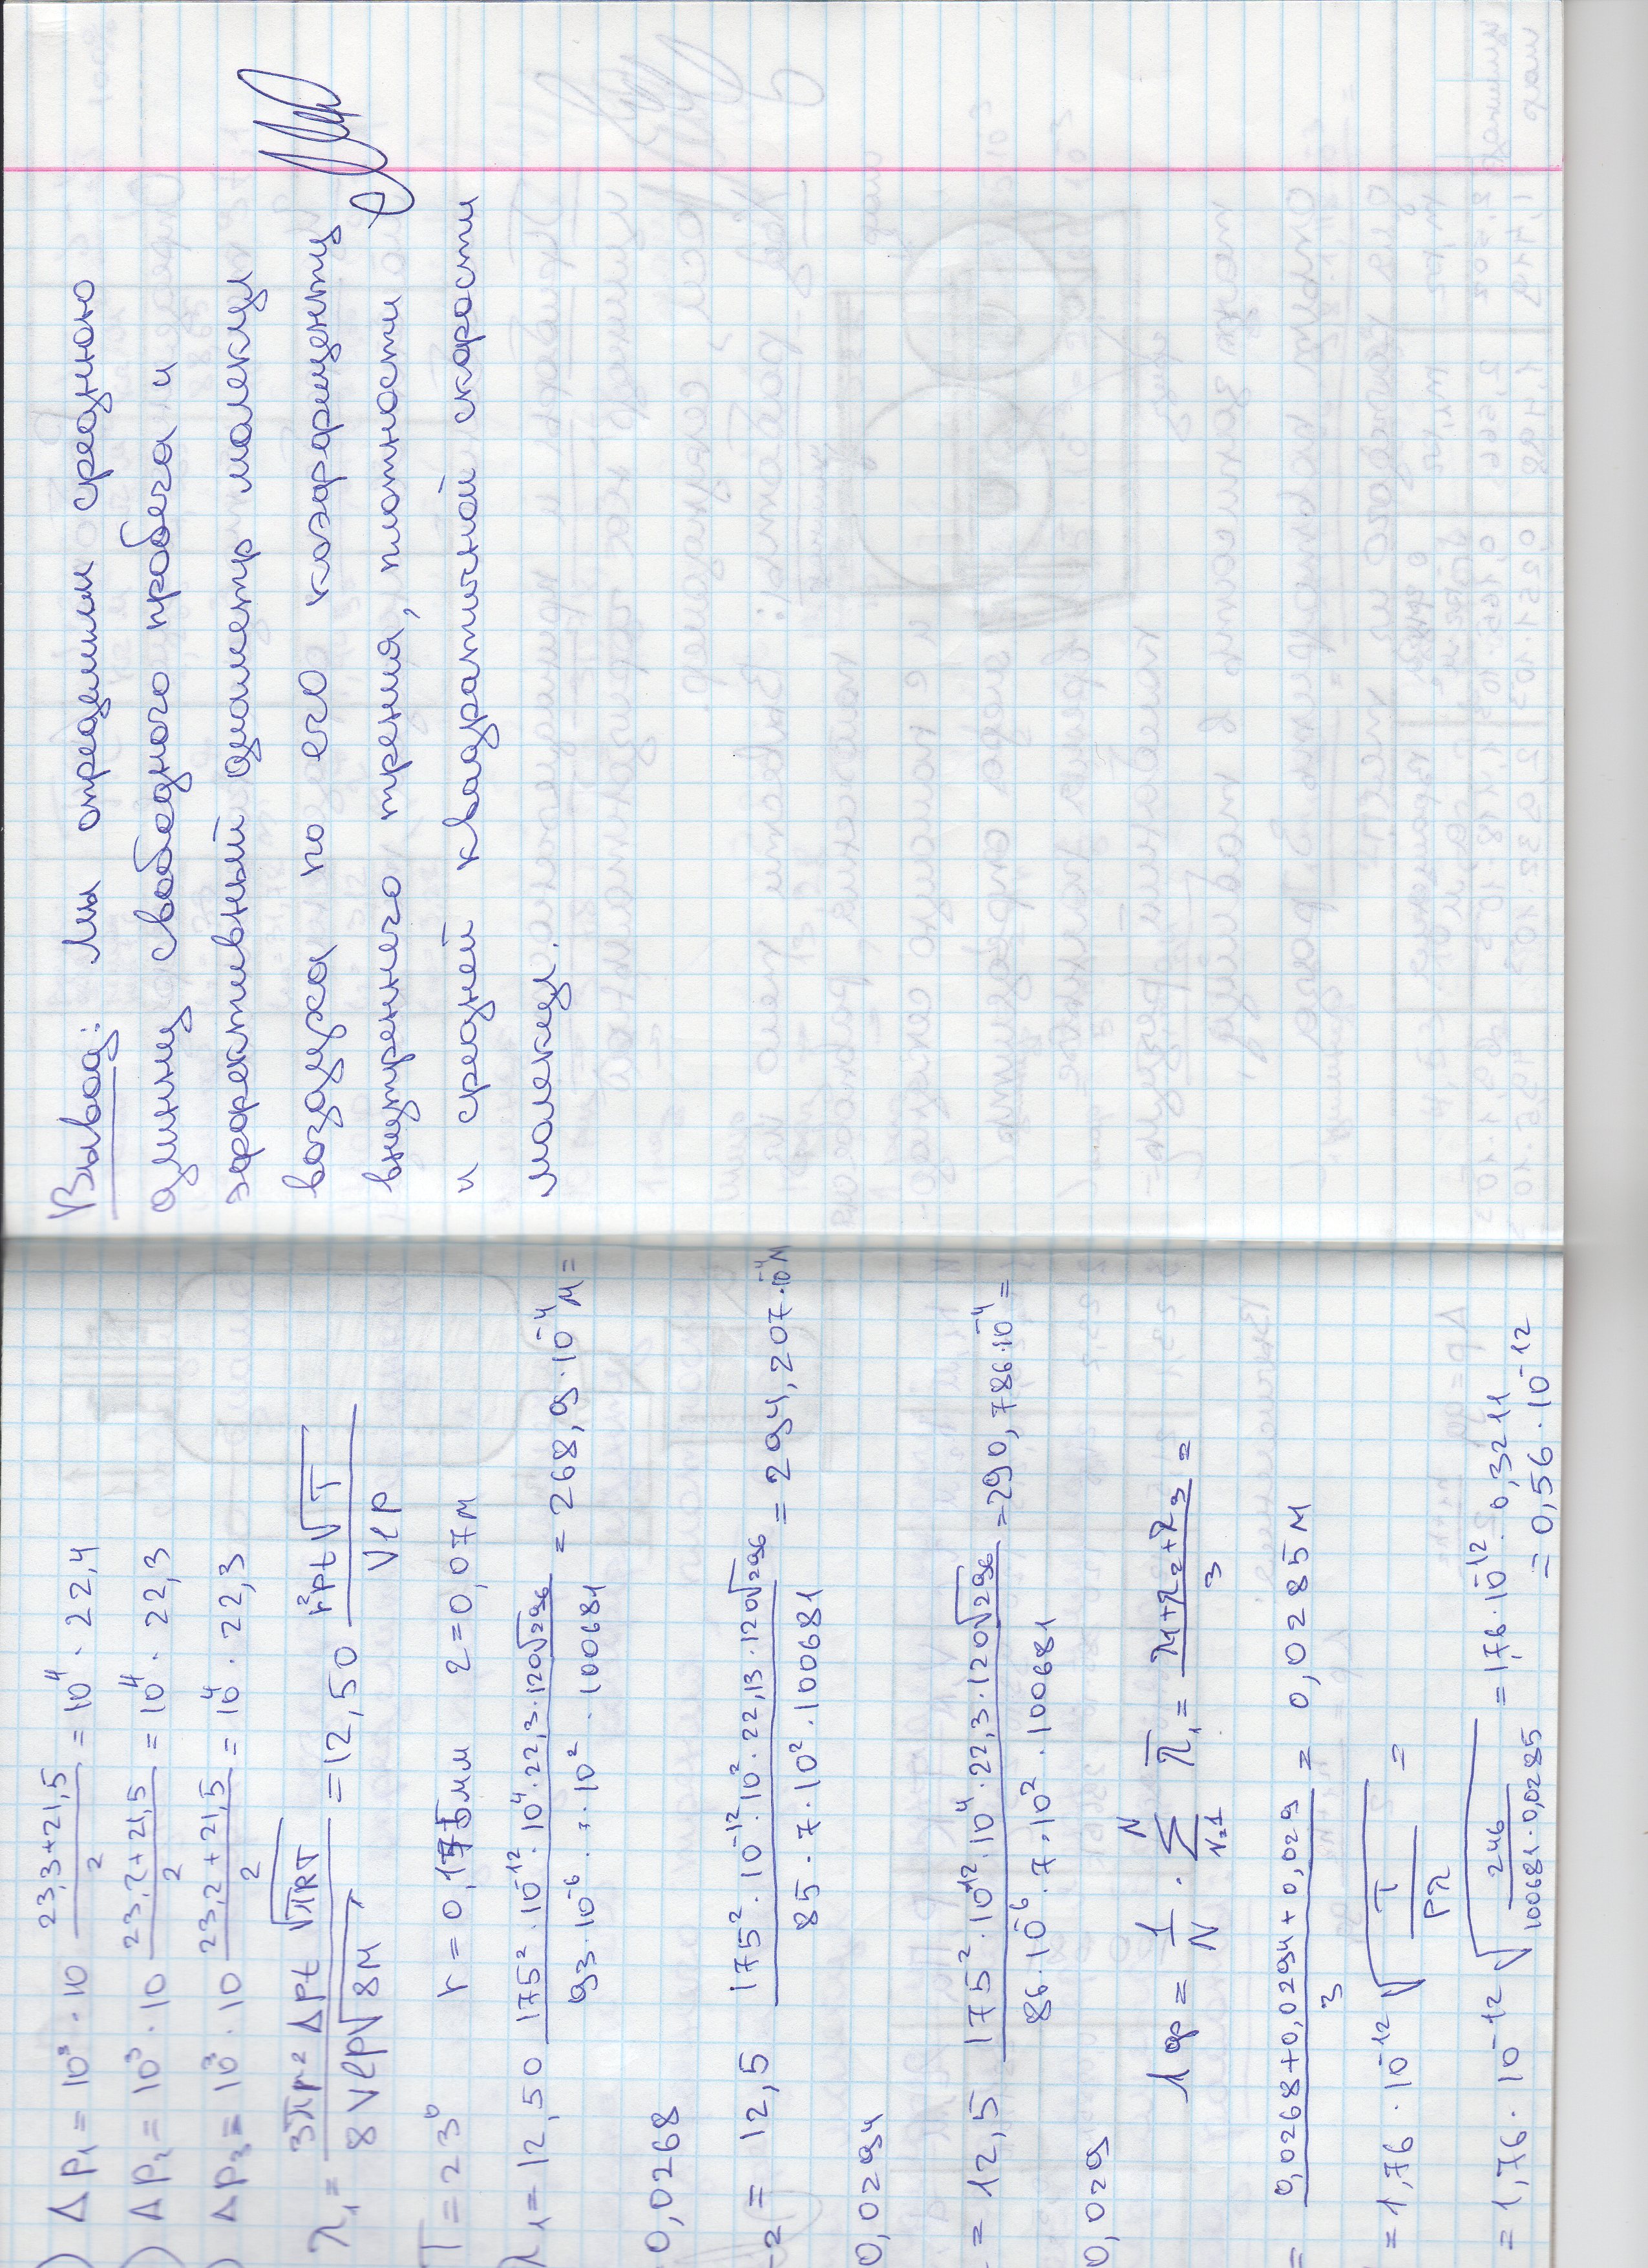 Δp₁ = 10³ · 10 (23,3+21,5)/2 = 10⁴ · 22,4
Δp₂ = 10³ · 10 (23,2+21,5)/2 = 10⁴ · 22,3
Δp₃ = 10³ · 10 (23,2+21,5)/2 = 10⁴ · 22,3
λ₁ = (3πr² Δpt √πRT)/(8Vlp√8M) = 12,50 (r²pt√T)/(Vlp)
T = 23⁰ r = 0,175мм l = 0,07м
λ₁ = 12,50 (175² · 10⁻¹² · 10⁴ · 22,3 · 120√296)/(93 · 10⁻⁶ · 7 · 10² · 100681) = 268,9 · 10⁻⁴ м =
0,0268
= 12,5 (175² · 10⁻¹² · 10² · 22,13 · 120√296)/(85 · 7 · 10² · 100681) = 294,207 · 10⁻⁴
0,0294
= 12,5 (175² · 10⁻¹² · 10⁴ · 22,3 · 120√296)/(86 · 10⁻⁶ · 7 · 10² · 100681) = 290,786 · 10⁻⁴ =
0,029
λ ср = 1/N · Σ λ̄₁ = (λ₁+λ₂+λ₃)/3 =
= (0,0268+0,0294+0,029)/3 = 0,0285 м
= 1,76 · 10⁻¹² √(T/(Pλ)) =
= 1,76 · 10⁻¹² √(246/(100681 · 0,0285)) = 1,76 · 10⁻¹² · 0,3211
= 0,56 · 10⁻¹²
Вывод: Мы определили среднюю
длинну свободного пробега и
эффективный диаметр молекул
воздуха по его коэффициенту
внутреннего трения, плотности
и средней квадратичной скорости
молекул.